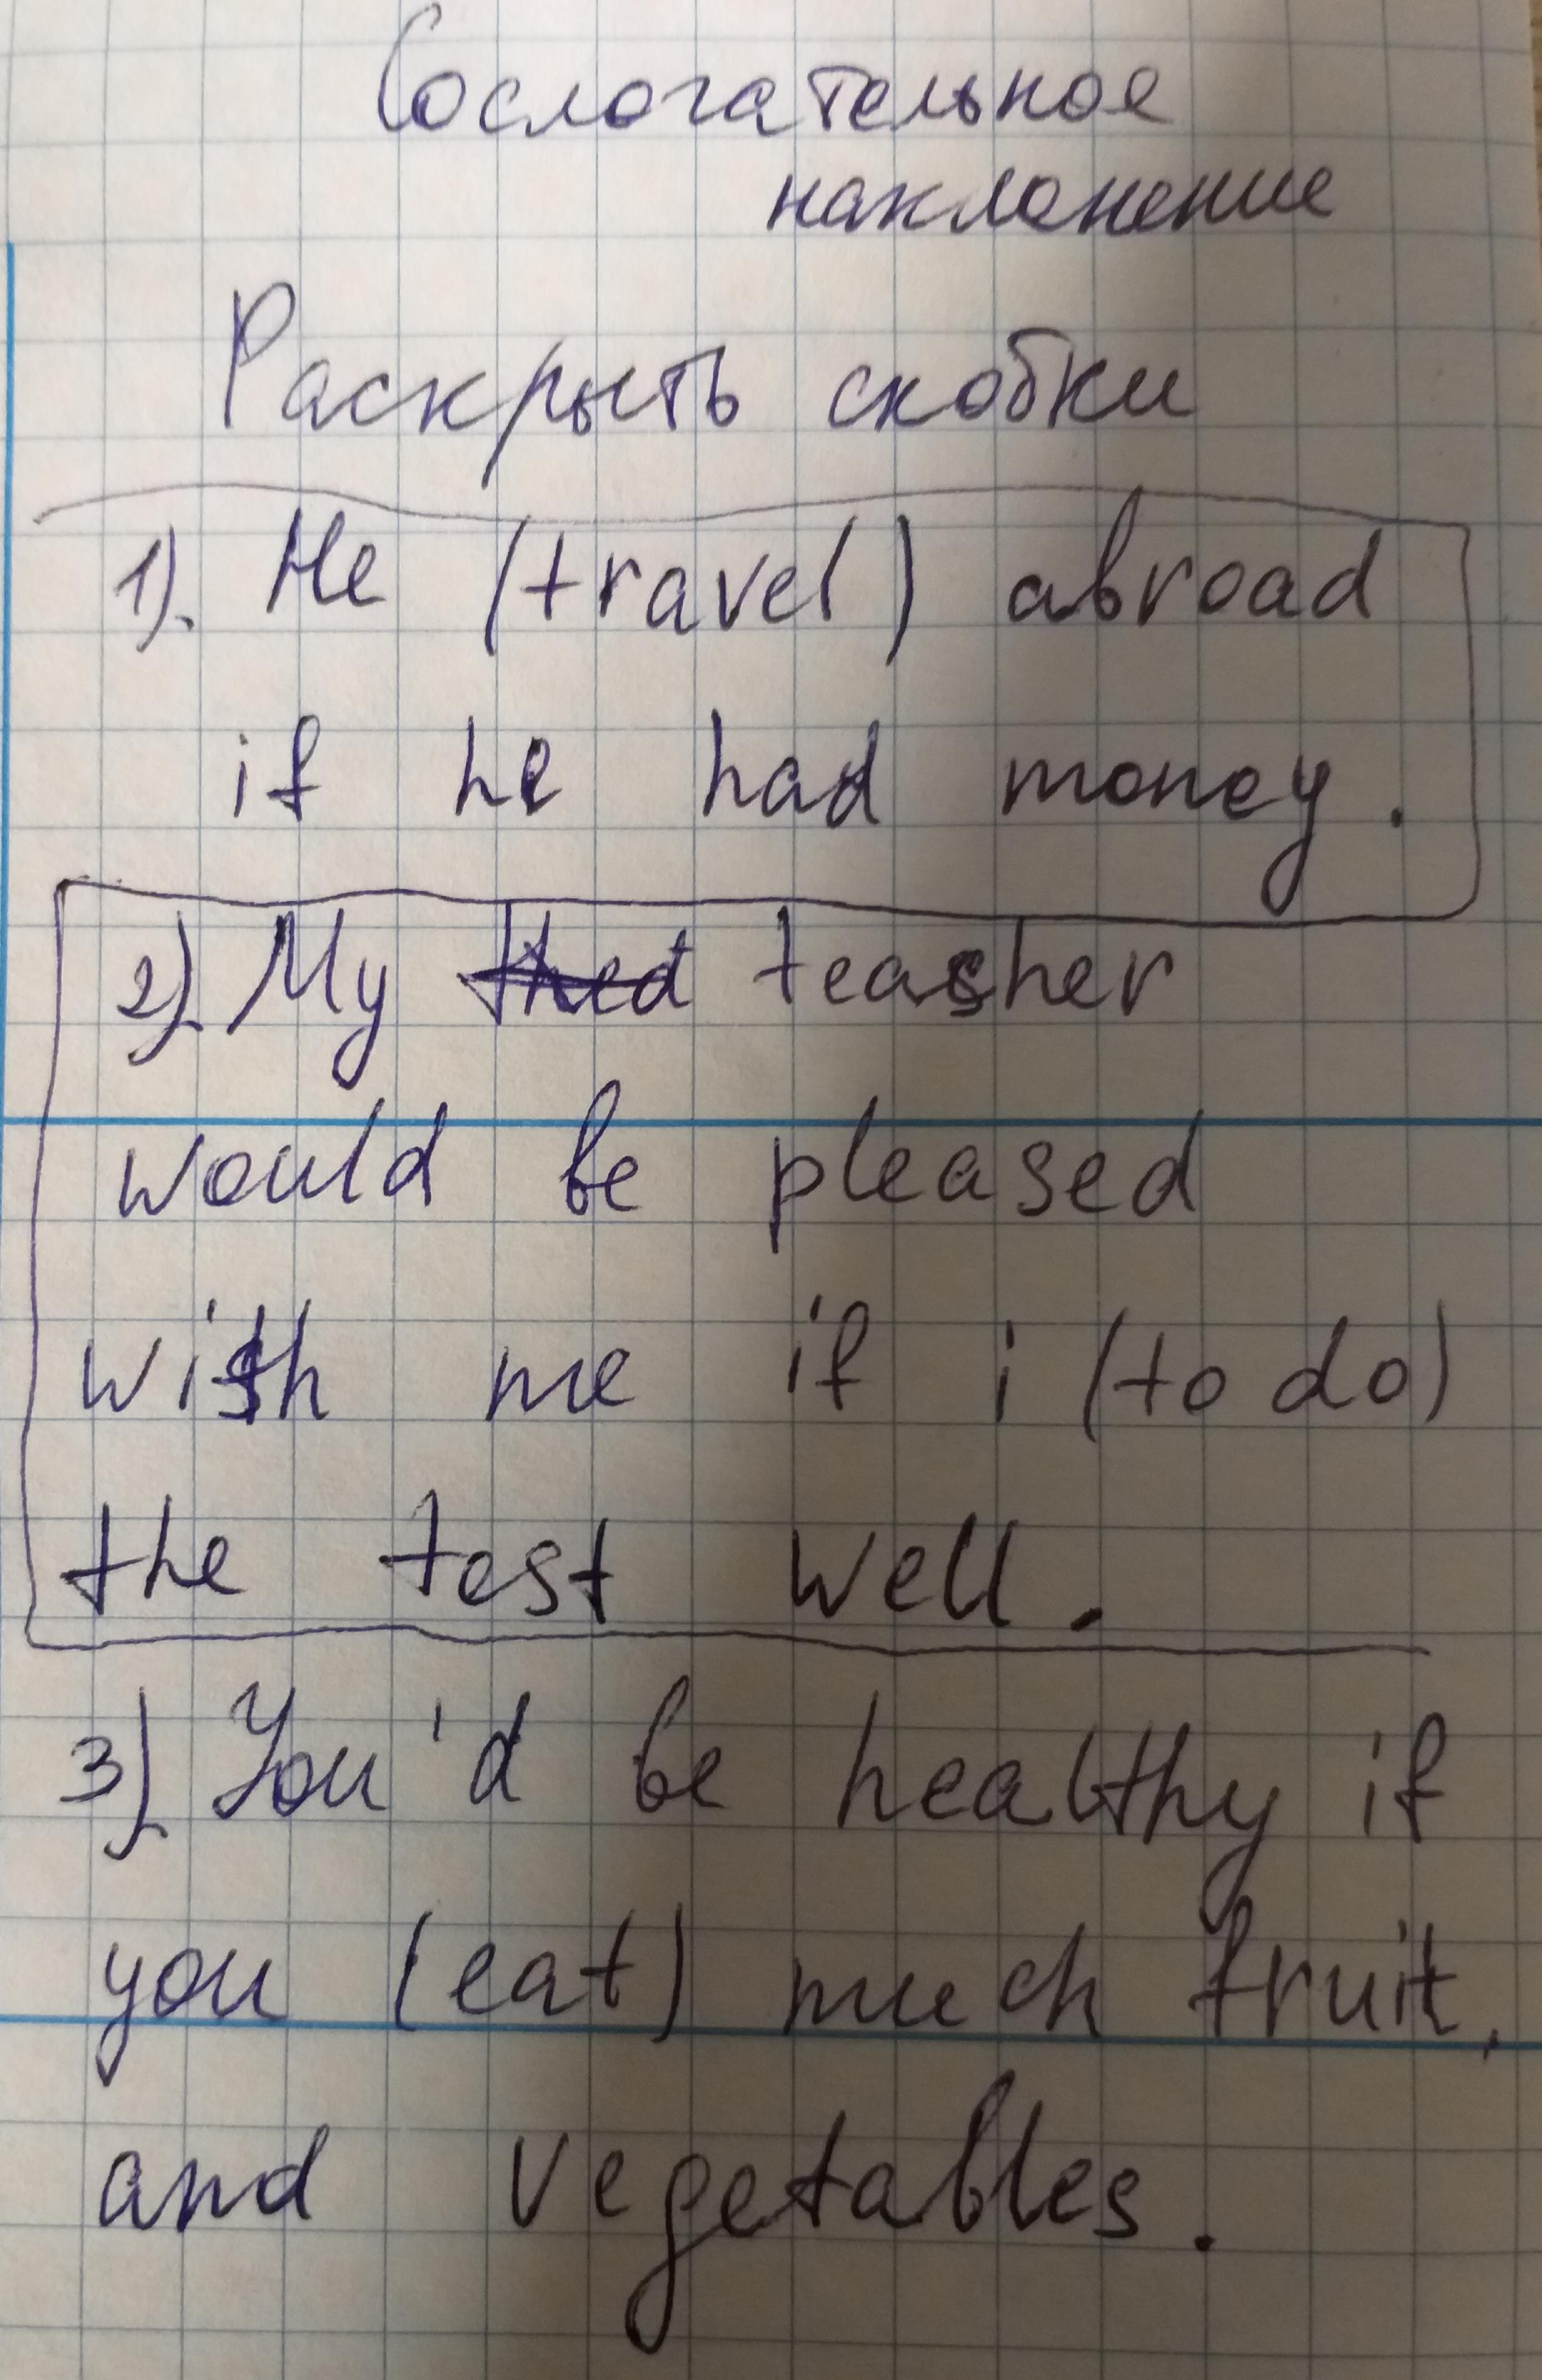 Сослогательное
наклонение
Раскрыть скобки
1). He (travel) abroad
if he had money.
2). My teacher
would be pleased
with me if i (to do)
the test well.
3). You'd be healthy if
you (eat) much fruit,
and vegetables.